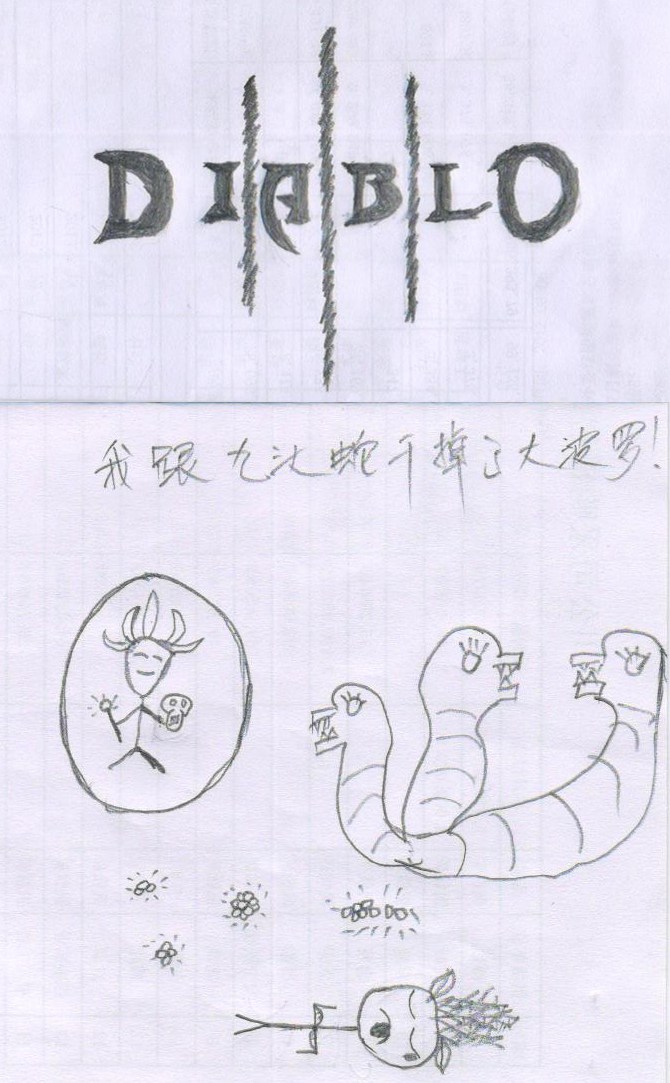 DIABLO
我跟九头蛇干掉了大波罗!